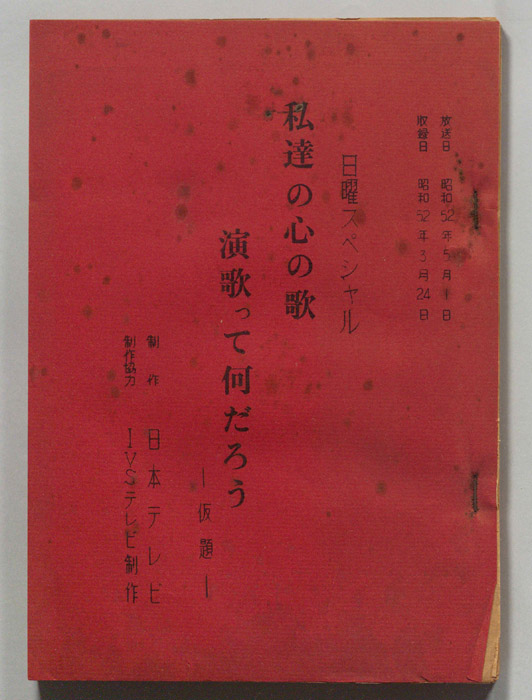 放送日 昭和52年5月1日
収録日 昭和52年3月24日
日曜スペシャル
私達の心の歌
演歌って何だろう
―仮題―
制作 日本テレビ
制作協力 IVSテレビ制作